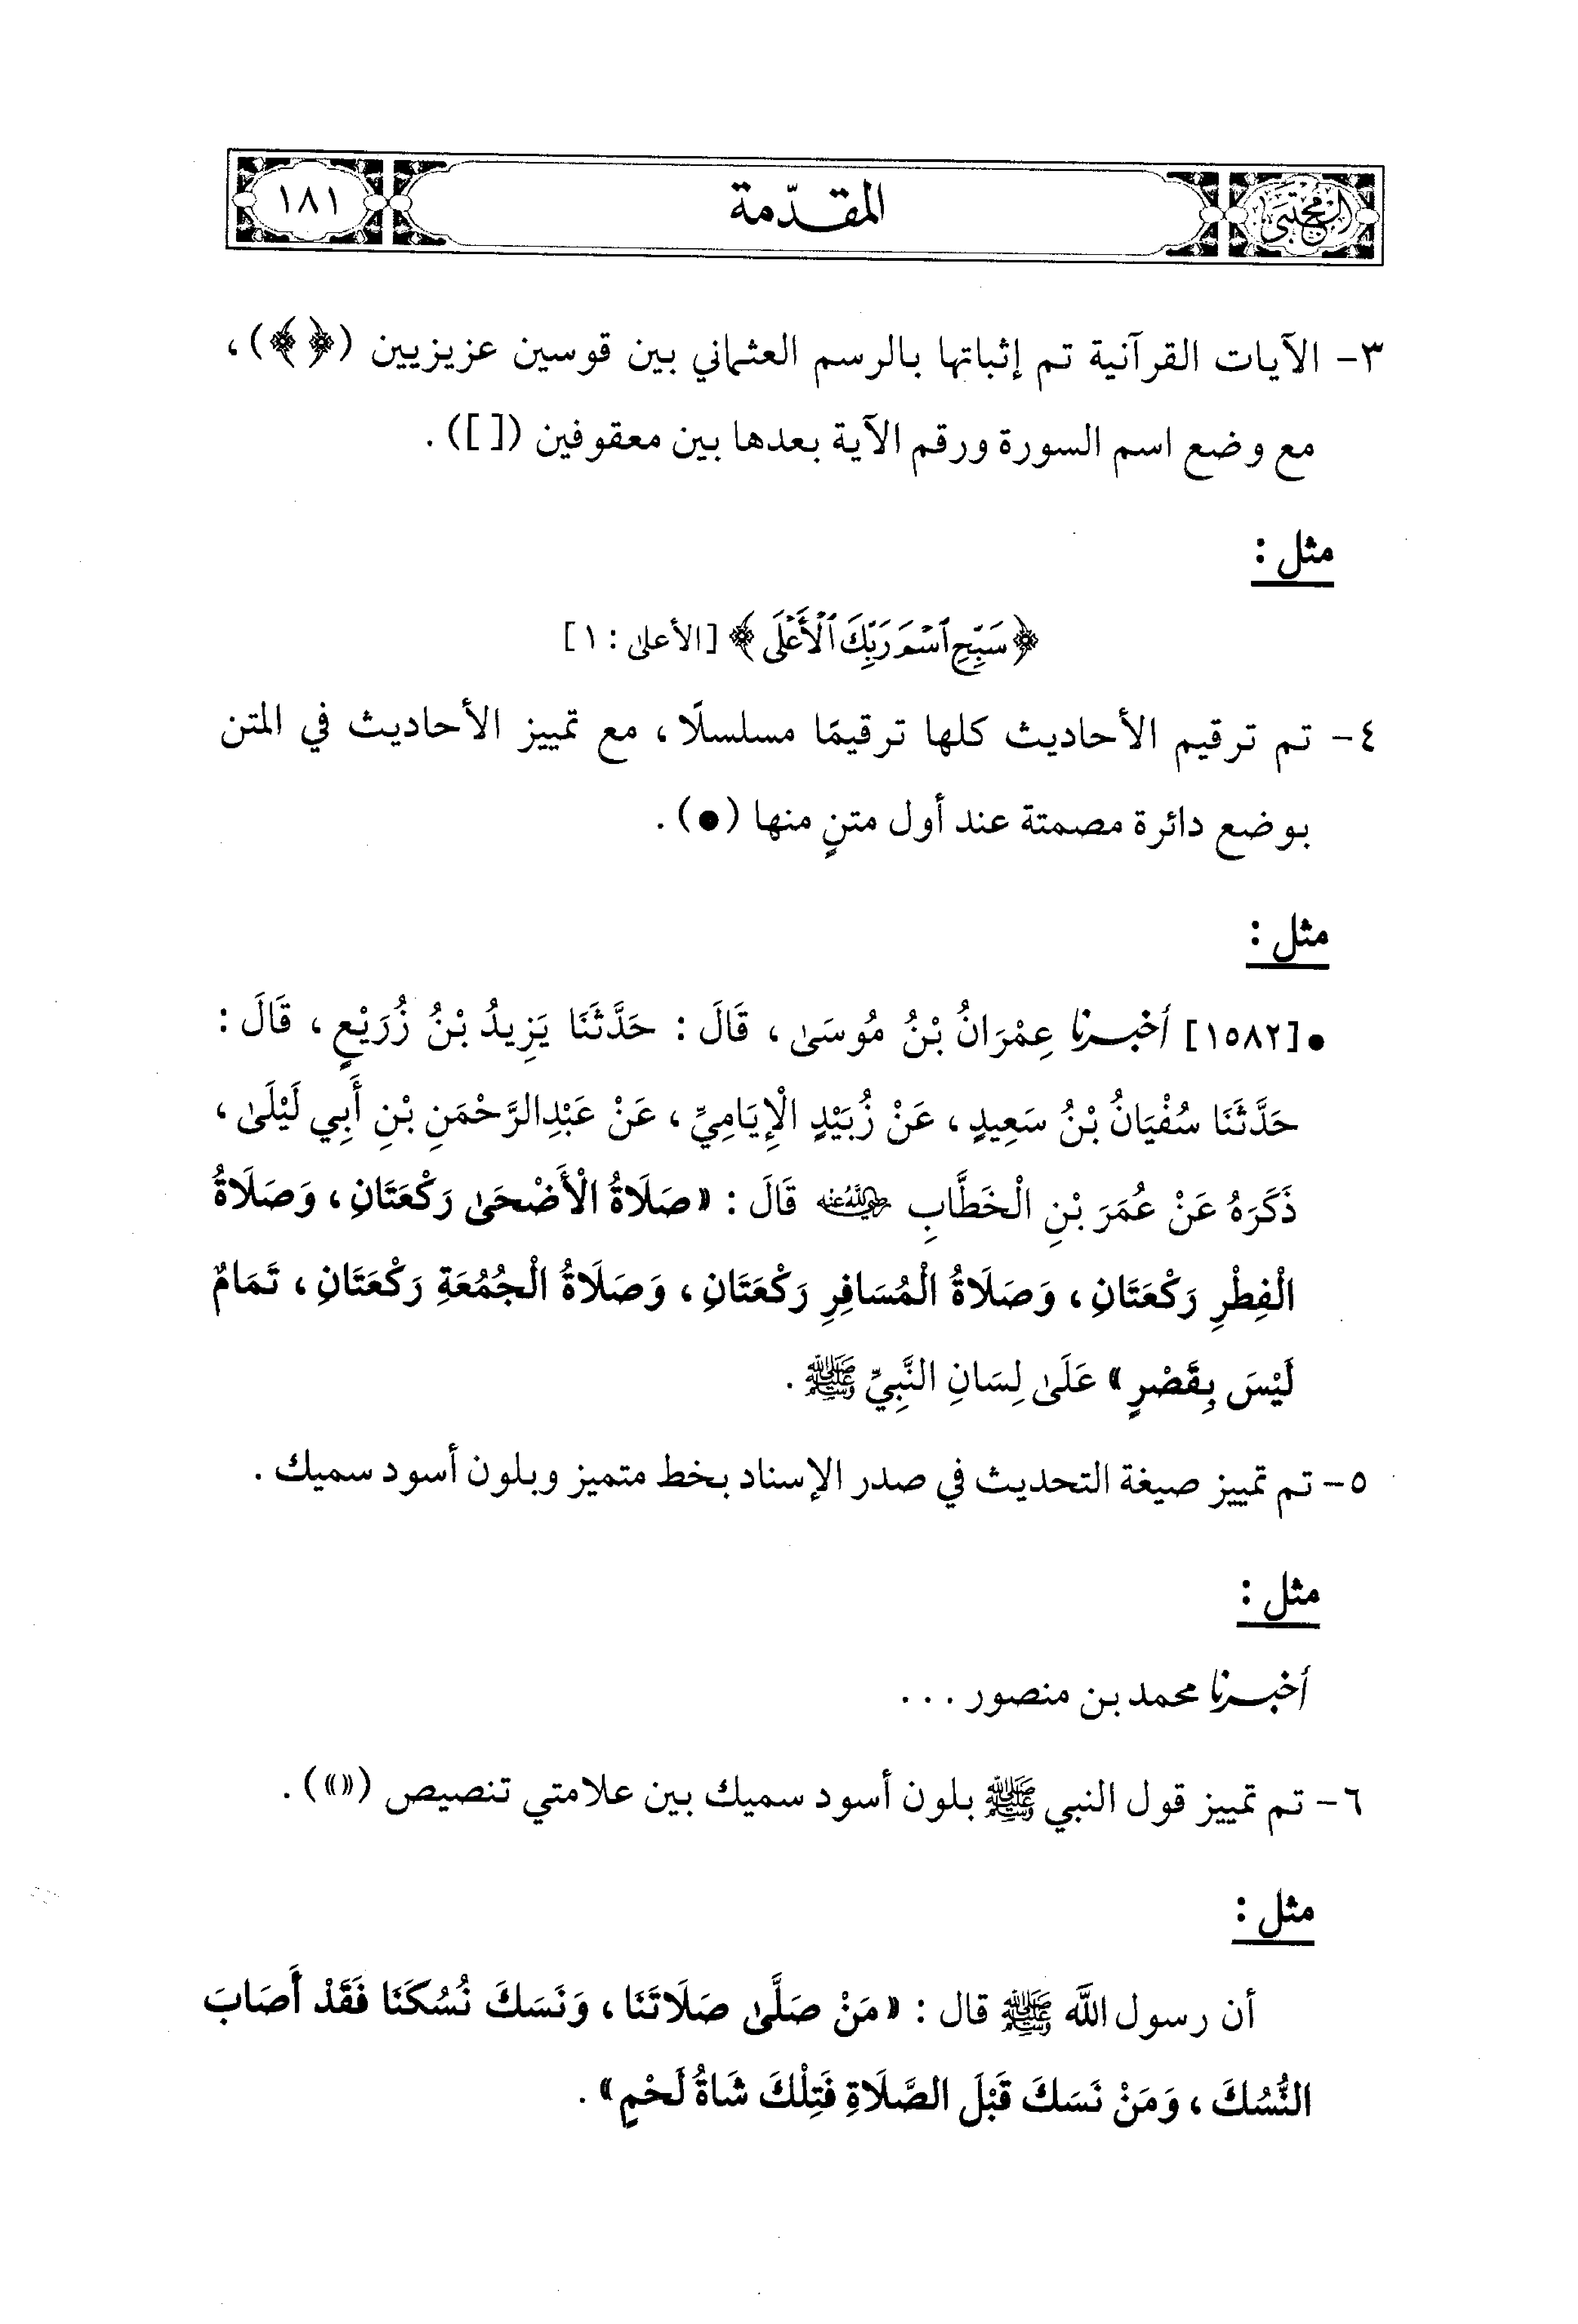 المجتبى
المقدّمة
١٨١
٣- الآيات القرآنية تم إثباتها بالرسم العثماني بين قوسين عزيزيين (﴿ ﴾)،
مع وضع اسم السورة ورقم الآية بعدها بين معقوفين ([ ]).
مثل :
﴿سَبِّحِ ٱسْمَ رَبِّكَ ٱلْأَعْلَى﴾ [الأعلىٰ : ١]
٤- تم ترقيم الأحاديث كلها ترقيمًا مسلسلًا، مع تمييز الأحاديث في المتن
بوضع دائرة مصمتة عند أول متنٍ منها (●).
مثل :
●[١٥٨٢] أخبرنا عِمْرَانُ بْنُ مُوسَىٰ، قَالَ : حَدَّثَنَا يَزِيدُ بْنُ زُرَيْعٍ، قَالَ :
حَدَّثَنَا سُفْيَانُ بْنُ سَعِيدٍ، عَنْ زُبَيْدٍ الْإِيَامِيِّ، عَنْ عَبْدِالرَّحْمَنِ بْنِ أَبِي لَيْلَىٰ،
ذَكَرَهُ عَنْ عُمَرَ بْنِ الْخَطَّابِ رضي الله عنه قَالَ : «صَلَاةُ الْأَضْحَىٰ رَكْعَتَانِ، وَصَلَاةُ
الْفِطْرِ رَكْعَتَانِ، وَصَلَاةُ الْمُسَافِرِ رَكْعَتَانِ، وَصَلَاةُ الْجُمُعَةِ رَكْعَتَانِ، تَمَامٌ
لَيْسَ بِقَصْرٍ» عَلَىٰ لِسَانِ النَّبِيِّ ﷺ.
٥- تم تمييز صيغة التحديث في صدر الإسناد بخط متميز وبلون أسود سميك.
مثل :
أخبرنا محمد بن منصور ...
٦- تم تمييز قول النبي ﷺ بلون أسود سميك بين علامتي تنصيص (« »).
مثل :
أن رسول اللَّه ﷺ قال : «مَنْ صَلَّىٰ صَلَاتَنَا، وَنَسَكَ نُسُكَنَا فَقَدْ أَصَابَ
النُّسُكَ، وَمَنْ نَسَكَ قَبْلَ الصَّلَاةِ فَتِلْكَ شَاةُ لَحْمٍ».